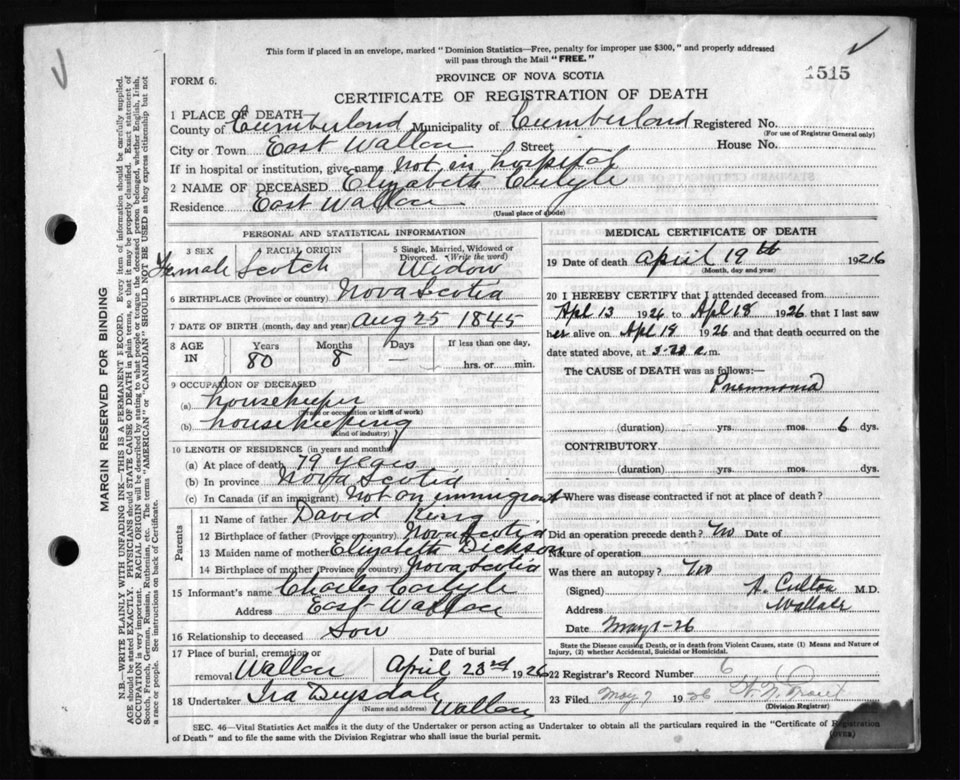 This form if placed in an envelope, marked "Dominion Statistics—Free, penalty for improper use $300," and properly addressed
will pass through the Mail "FREE."
1515
FORM 6.
PROVINCE OF NOVA SCOTIA
CERTIFICATE OF REGISTRATION OF DEATH
1 PLACE OF DEATH
County of Cumberland Municipality of Cumberland Registered No.
(For use of Registrar General only)
City or Town East Wallace Street House No.
If in hospital or institution, give name Not in hospital
2 NAME OF DECEASED Elizabeth Carlyle
Residence East Wallace
(Usual place of abode)
PERSONAL AND STATISTICAL INFORMATION
3 SEX Female
4 RACIAL ORIGIN Scotch
5 Single, Married, Widowed or Divorced. (Write the word) Widow
6 BIRTHPLACE (Province or country) Nova Scotia
7 DATE OF BIRTH (month, day and year) Aug 25 1845
8 AGE IN Years Months Days If less than one day,
80 8 — hrs. or min.
9 OCCUPATION OF DECEASED
(a) housekeeper
(Trade or occupation or kind of work)
(b) housekeeping
(Kind of industry)
10 LENGTH OF RESIDENCE (in years and months)
(a) At place of death 79 years
(b) In province Nova Scotia
(c) In Canada (if an immigrant) Not an immigrant
Parents
11 Name of father David King
12 Birthplace of father (Province or country) Nova Scotia
13 Maiden name of mother Elizabeth Dickson
14 Birthplace of mother (Province or country) Nova Scotia
15 Informant's name Charles Carlyle
Address East Wallace
16 Relationship to deceased Son
17 Place of burial, cremation or removal Wallace
Date of burial April 23rd 1926
18 Undertaker Ira Drysdale
(Name and address) Wallace
MEDICAL CERTIFICATE OF DEATH
19 Date of death April 19th 1926
(Month, day and year)
20 I HEREBY CERTIFY that I attended deceased from
Apl 13 1926 to Apl 18 1926 that I last saw
her alive on Apl 18 1926 and that death occurred on
date stated above, at a.m.
The CAUSE OF DEATH was as follows:—
Pneumonia
(duration) yrs. mos. 6 dys.
CONTRIBUTORY
(duration) yrs. mos. dys.
21 Where was disease contracted if not at place of death?
Did an operation precede death? No Date of
Nature of operation
Was there an autopsy? No
(Signed) M.D.
Address Wallace
Date May 1-26
State the Disease causing Death, or in death from Violent Causes, state (1) Means and Nature of
Injury, (2) whether Accidental, Suicidal or Homicidal.
22 Registrar's Record Number 6
23 Filed May 7 1926
(Division Registrar)
SEC. 46—Vital Statistics Act makes it the duty of the Undertaker or person acting as Undertaker to obtain all the particulars required in the "Certificate of Registration
of Death" and to file the same with the Division Registrar who shall issue the burial permit.
(OVER)
MARGIN RESERVED FOR BINDING
N.B.—WRITE PLAINLY WITH UNFADING INK—THIS IS A PERMANENT RECORD. Every item of information should be carefully supplied.
AGE should be stated EXACTLY. PHYSICIANS should STATE CAUSE OF DEATH in plain terms, so that it may be properly classified. Exact statement of
OCCUPATION is very important. RACIAL ORIGIN will be described by stating to what people or tongue the deceased person belonged, whether English, Irish,
Scotch, French, German, Russian, Ruthenian, etc. The terms "AMERICAN" or "CANADIAN" SHOULD NOT BE USED as they express citizenship but not
a race or people. See instructions on back of Certificate.